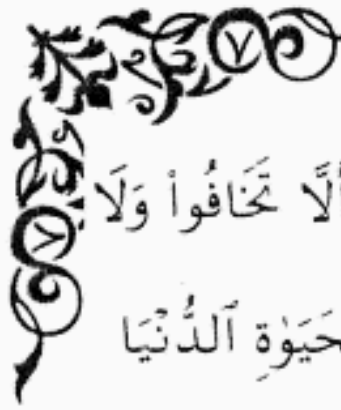 أَلَّا تَخَافُوا۟ وَلَا
حَيَوٰةِ ٱلدُّنْيَا